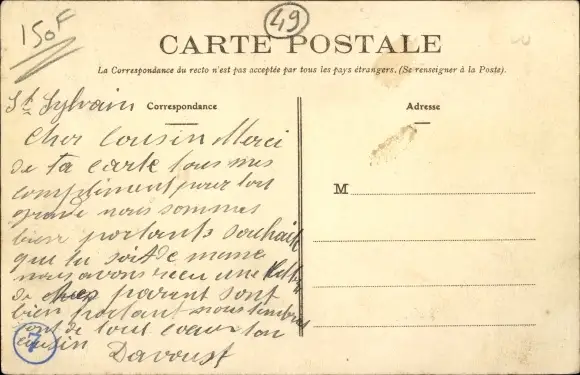 150F
49
CARTE POSTALE
La Correspondance du recto n'est pas acceptée par tous les pays étrangers. (Se renseigner à la Poste).
St Sylvain
Correspondance
Adresse
Cher Cousin Merci
de ta carte tous mes
compliment pour ton
grade nous sommes
bien portants souhait
que tu soit de meme
nous avons recu une
de parent sont
bien portant nous
de tout coeur ton
cousin Davoust
M
7